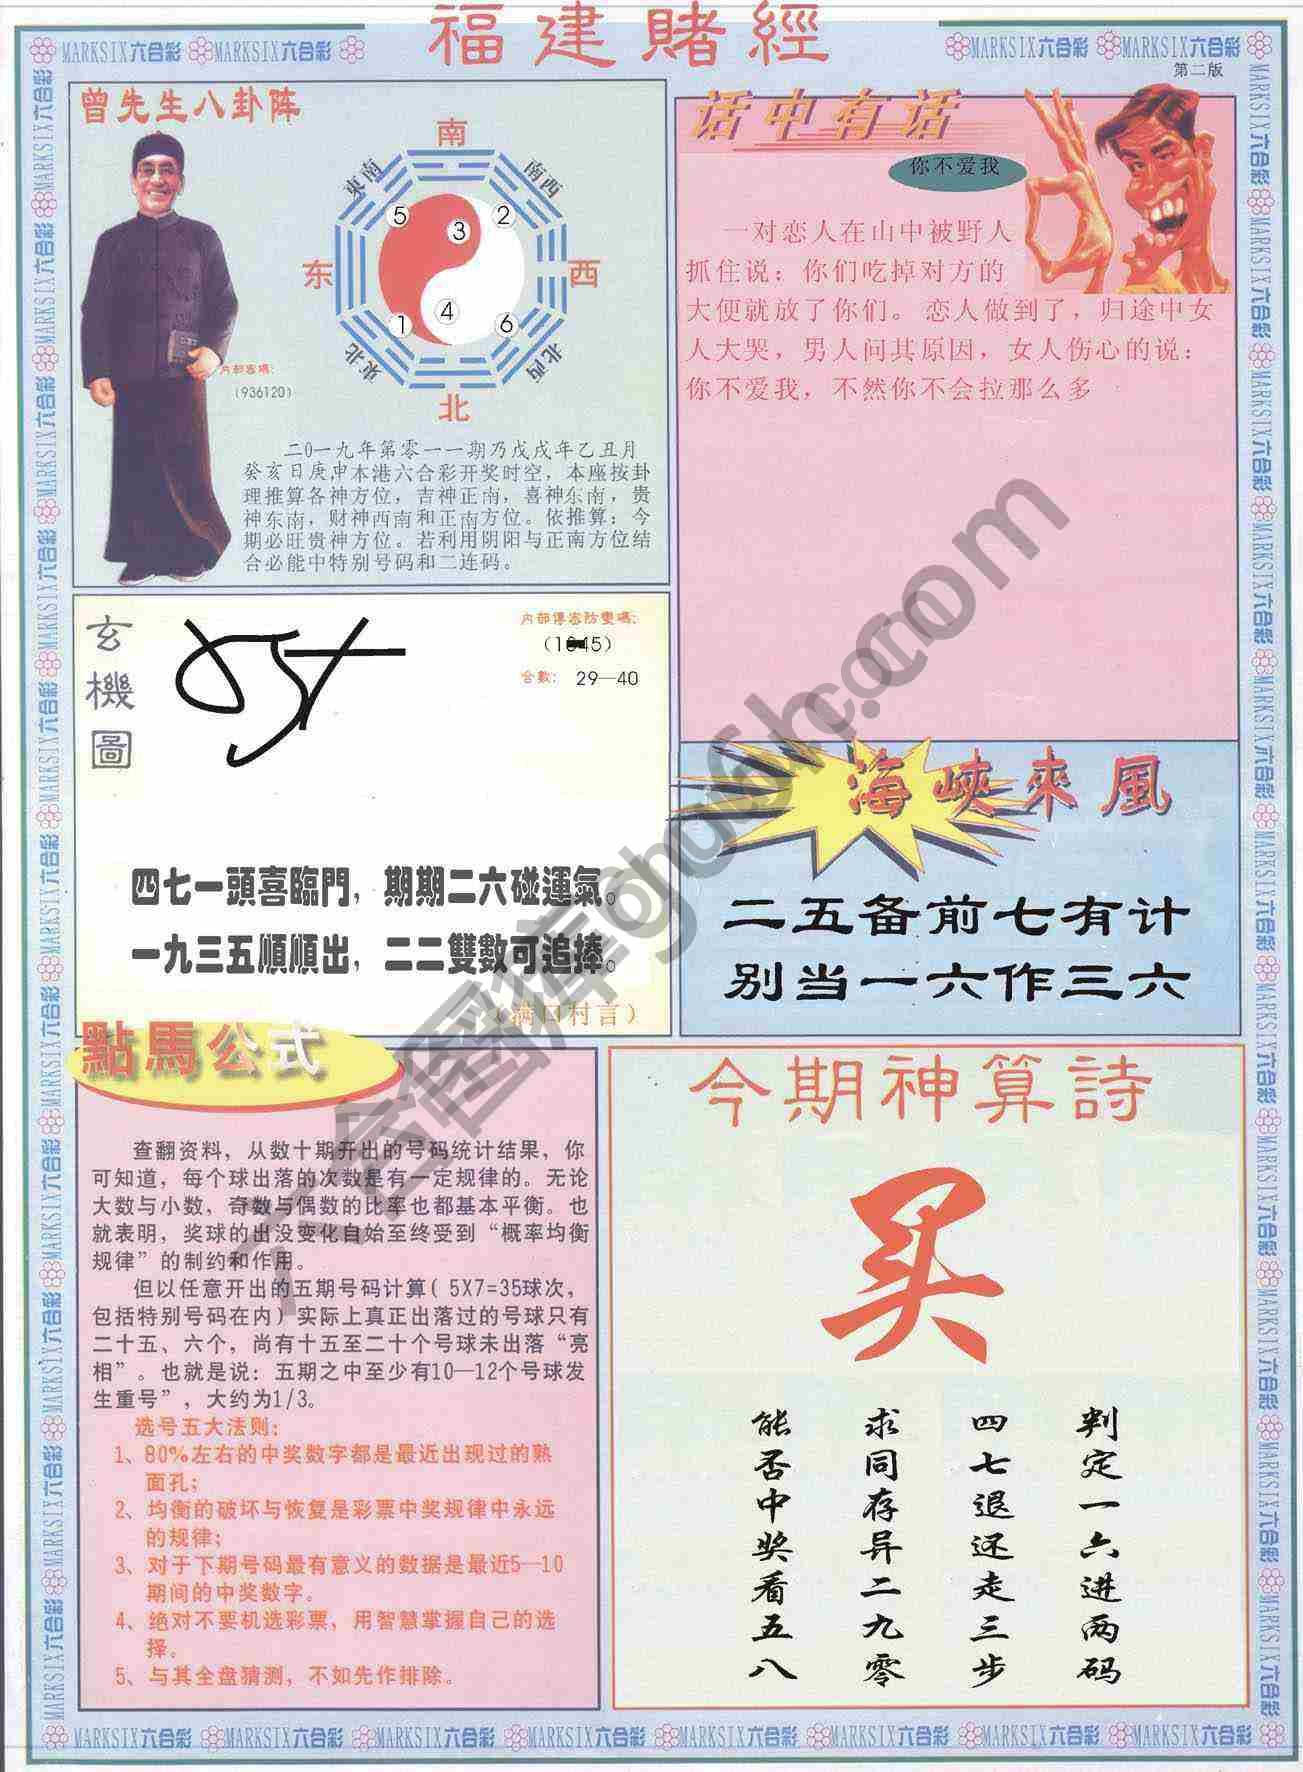 福建賭經
MARKSIX六合彩 MARKSIX六合彩
MARKSIX六合彩 MARKSIX六合彩
第二版
曾先生八卦阵
南
東南
南西
5
3
2
东
西
1
4
6
東北
北西
北
内部密碼：
(936120)
二0一九年第零一一期乃戊戌年乙丑月
癸亥日庚申本港六合彩开奖时空，本座按卦
理推算各神方位，吉神正南，喜神东南，贵
神东南，财神西南和正南方位。依推算：今
期必旺贵神方位。若利用阴阳与正南方位结
合必能中特别号码和二连码。
话中有话
你不爱我
一对恋人在山中被野人
抓住说：你们吃掉对方的
大便就放了你们。恋人做到了，归途中女
人大哭，男人问其原因，女人伤心的说：
你不爱我，不然你不会拉那么多
玄機圖
内部傳密防變碼：
合數： 29—40
四七一頭喜臨門，期期二六碰運氣。
一九三五順順出，二二雙數可追捧。
（满口村言）
海峽來風
二五备前七有计
别当一六作三六
點馬公式
查翻资料，从数十期开出的号码统计结果，你
可知道，每个球出落的次数是有一定规律的。无论
大数与小数，奇数与偶数的比率也都基本平衡。也
就表明，奖球的出没变化自始至终受到“概率均衡
规律”的制约和作用。
但以任意开出的五期号码计算( 5X7=35球次，
包括特别号码在内）实际上真正出落过的号球只有
二十五、六个，尚有十五至二十个号球未出落“亮
相”。也就是说：五期之中至少有10—12个号球发
生重号”，大约为1/3。
选号五大法则：
1、80%左右的中奖数字都是最近出现过的熟
面孔；
2、均衡的破坏与恢复是彩票中奖规律中永远
的规律；
3、对于下期号码最有意义的数据是最近5—10
期间的中奖数字。
4、绝对不要机选彩票，用智慧掌握自己的选
择。
5、与其全盘猜测，不如先作排除。
今期神算詩
买
判定一六进两码
四七退还走三步
求同存异二九零
能否中奖看五八
MARKSIX六合彩 MARKSIX六合彩 MARKSIX六合彩 MARKSIX六合彩 MARKSIX六合彩 MARKSIX六合彩 MARKSIX六合彩 MARKSIX六合彩